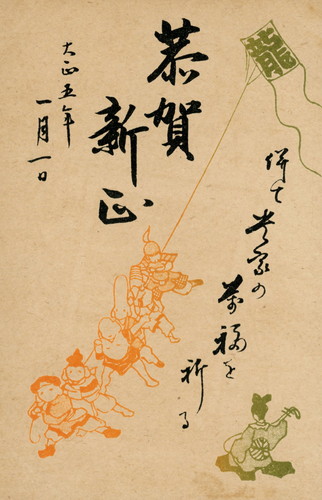 龍
恭賀
新正
大正五年
一月一日
併て貴家の
萬福を
祈る